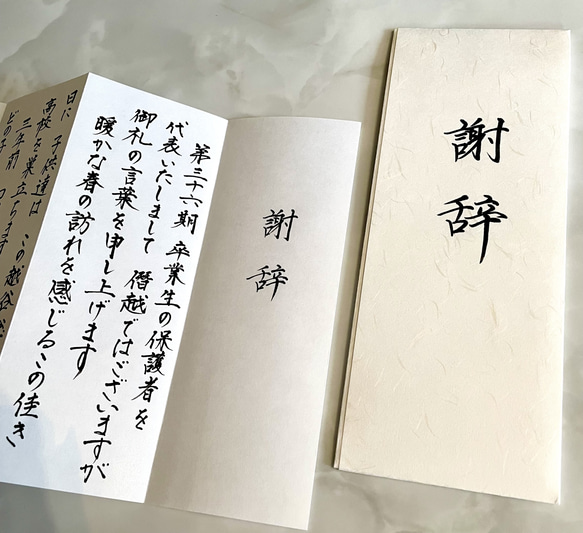 謝辞
謝辞
第三十六期 卒業生の保護者を
代表いたしまして 僭越ではございますが
御礼の言葉を申し上げます
暖かな春の訪れを感じるこの佳き
日に 子供達は
高校を巣立ちます
三年前 この越谷